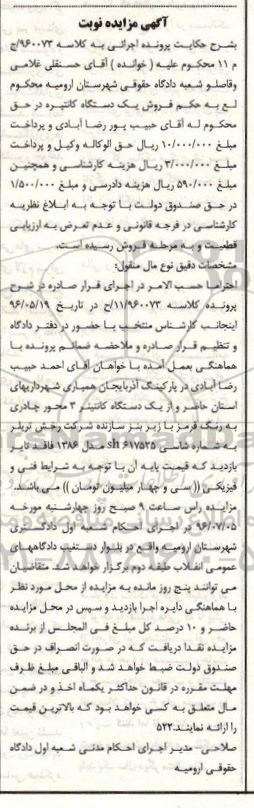 آگهی مزایده نوبت
بشرح حکایت پرونده اجرائی به کلاسه ۹۶۰۰۷۳/ج
م ۱۱ محکوم علیه ( خوانده ) آقای حسنقلی غلامی
وفاصلو شعبه دادگاه حقوقی شهرستان ارومیه محکوم
لع به حکم فروش یک دستگاه کانتینره در حق
محکوم له آقای حبیب پور رضا آبادی و پرداخت
مبلغ ۱۰/۰۰۰/۰۰۰ ریال حق الوکاله وکیل و پرداخت
مبلغ ۳/۰۰۰/۰۰۰ ریال هزینه کارشناسی و همچنین
مبلغ ۵۹۰/۰۰۰ ریال هزینه دادرسی و مبلغ ۱/۵۰۰/۰۰۰
در حق صندوق دولت با توجه به ابلاغ نظریه
کارشناسی در فرجه قانونی و عدم تعرض به ارزیابی
قطعیت و به مرحله فروش رسیده است.
مشخصات دقیق نوع مال منقول:
احتراما حسب الامر در اجرای قرار صادره در شرح
پرونده کلاسه ۱۱/۹۶۰۰۷۳/ج در تاریخ ۹۶/۰۵/۱۹
اینجانب کارشناس منتخب با حضور در دفتر دادگاه
و تنظیم قرار صادره و ملاحضه ضمائم پرونده با
هماهنگی بعمل آمده با خواهان آقای احمد حبیب
رضا آبادی در پارکینگ آذربایجان همیاری شهرداریهای
استان حاضر و از یک دستگاه کانتینر ۳ محور چادری
به رنگ قرمز با زیر بنز سازنده شرکت رخش تریلر
به شماره شاسی sh ۶۱۷۵۲۵ مدل ۱۳۸۶ فاقد تایر
بازدید که قیمت پایه آن با توجه به شرایط فنی و
فیزیکی (( سی و چهار میلیون تومان )) می باشد.
مزایده راس ساعت ۹ صبح روز چهارشنبه مورخه
۹۶/۰۷/۰۵ در اجرای احکام شعبه اول دادگستری
شهرستان ارومیه واقع در بلوار دستغیب دادگاههای
عمومی انقلاب طبقه دوم برگزار خواهد شد. متقاضیان
می توانند پنج روز مانده به مزایده از محل مورد نظر
با هماهنگی دایره اجرا بازدید و سپس در محل مزایده
حاضر و ۱۰ درصد کل مبلغ فی المجلس از برنده
مزایده نقدا دریافت که در صورت انصراف در حق
صندوق دولت ضبط خواهد شد و الباقی مبلغ ظرف
مهلت مقرره در قانون حداکثر یکماه اخذ و در ضمن
مال متعلق به کسی خواهد بود که بالاترین قیمت
را ارائه نمایند.۵۲۲
صلاحی- مدیر اجرای احکام مدنی شعبه اول دادگاه
حقوقی ارومیه